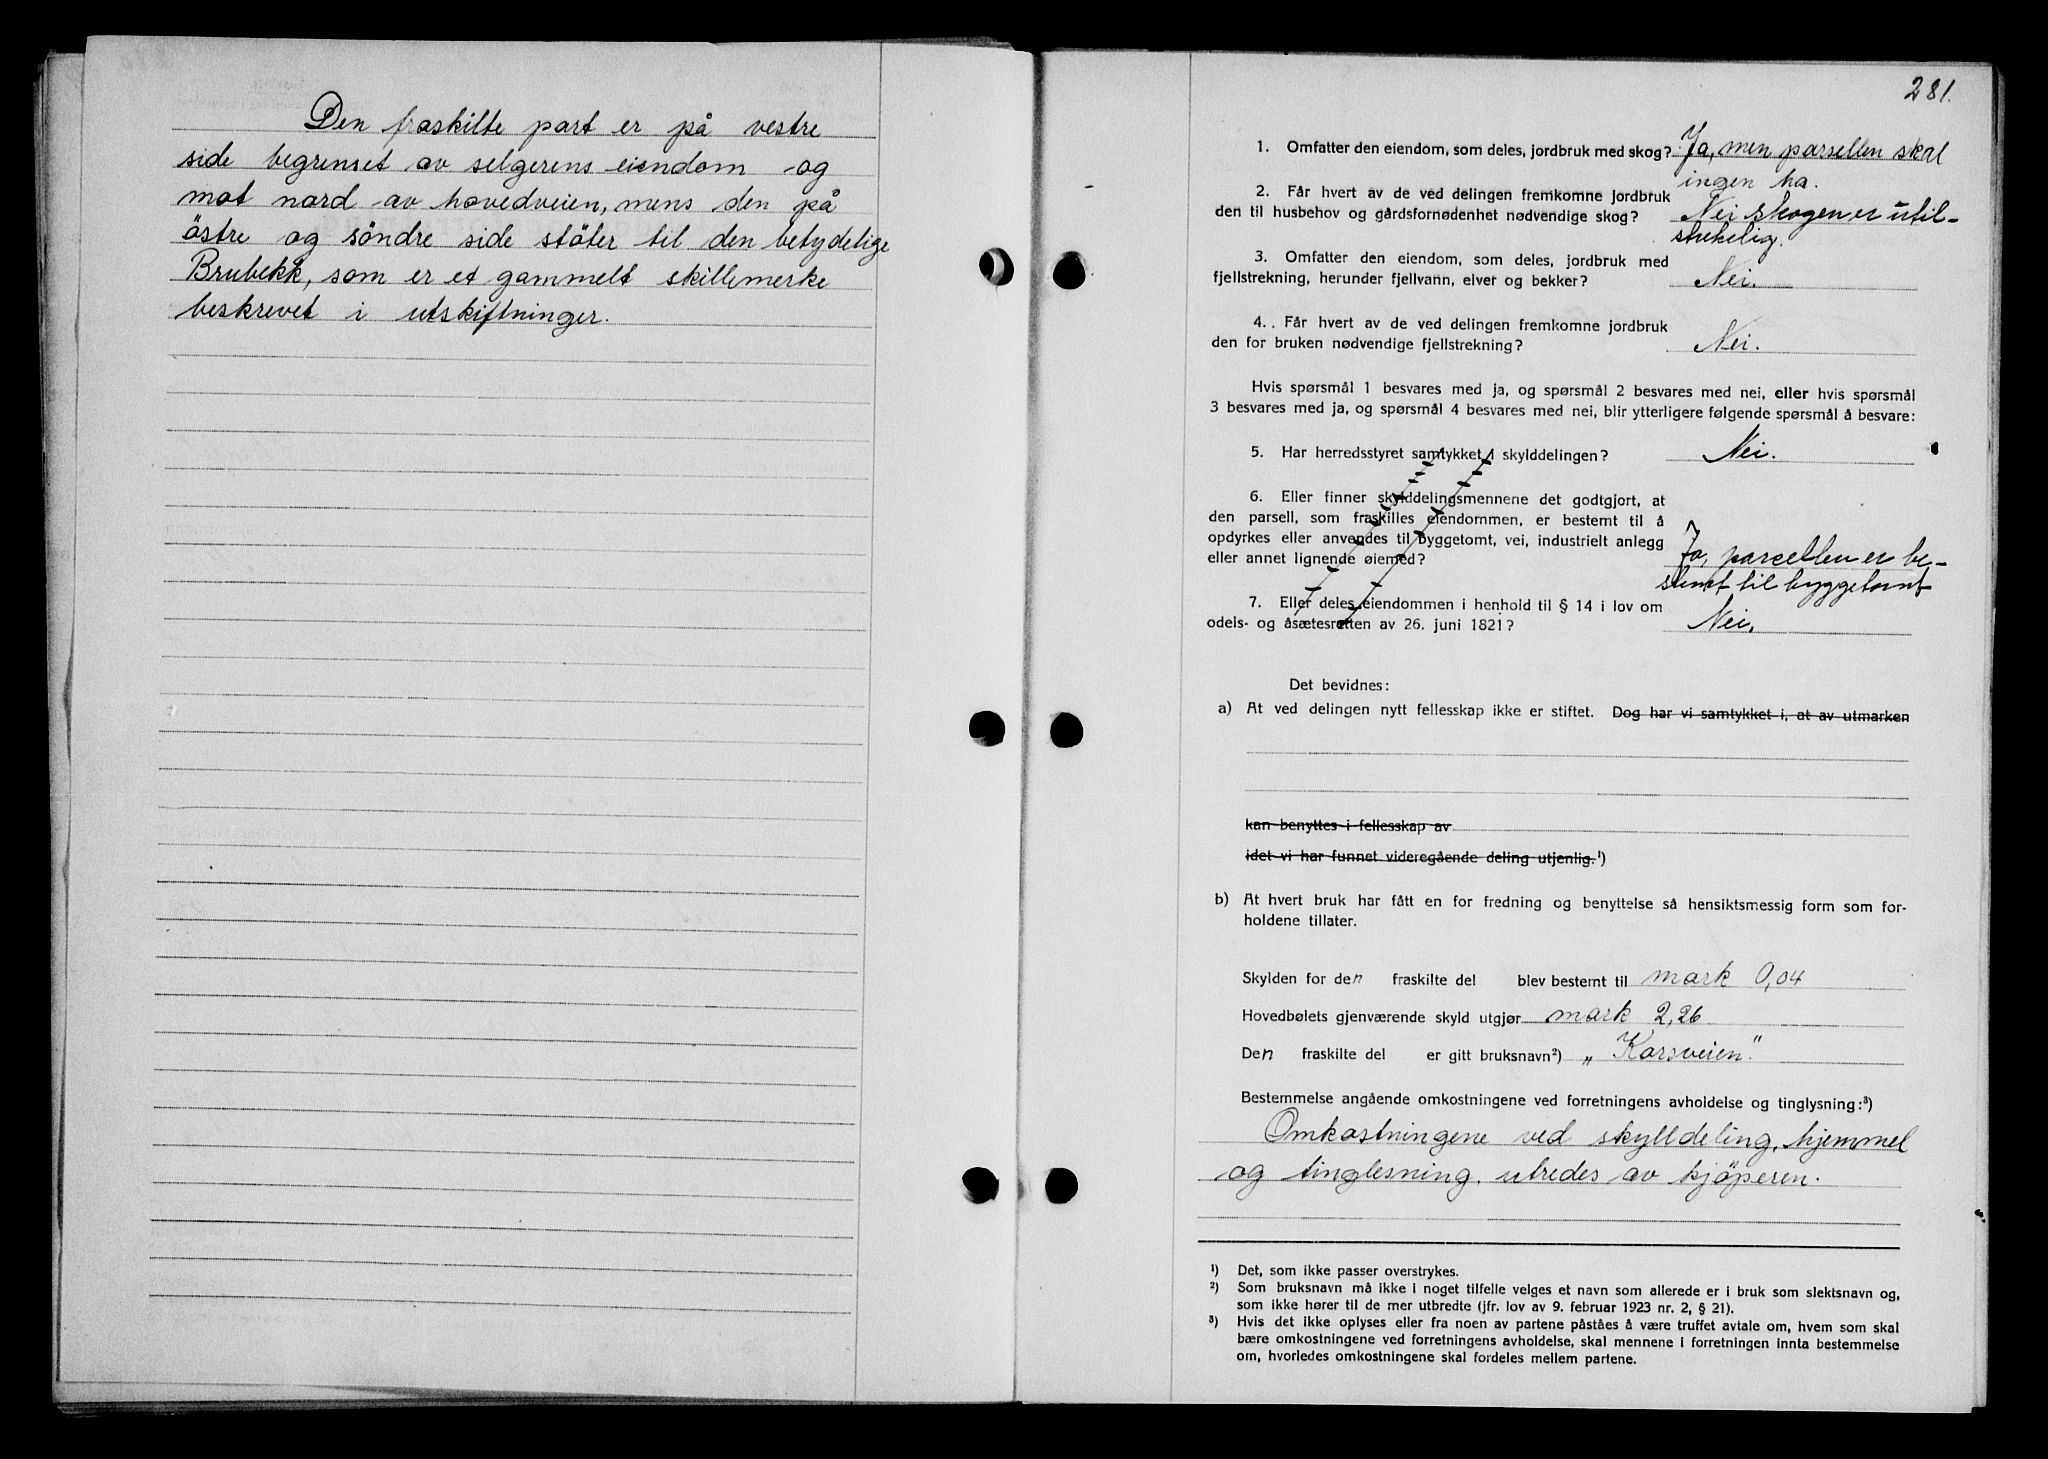 Den fraskilte part er på vestre
side begrenset av selgerens eiendom og
mot nord av hovedveien, mens den på
östre og söndre side stöter til den betydelige
Brubekk, som er et gammelt skillemerke
beskrevet i utskiftninger.
281.
1. Omfatter den eiendom, som deles, jordbruk med skog? Ja, men parsellen skal
ingen ha.
2. Får hvert av de ved delingen fremkomne jordbruk
den til husbehov og gårdsfornødenhet nødvendige skog? Nei skogen er util-
strekelig.
3. Omfatter den eiendom, som deles, jordbruk med
fjellstrekning, herunder fjellvann, elver og bekker? Nei.
4. Får hvert av de ved delingen fremkomne jordbruk
den for bruken nødvendige fjellstrekning? Nei.
Hvis spørsmål 1 besvares med ja, og spørsmål 2 besvares med nei, eller hvis spørsmål
3 besvares med ja, og spørsmål 4 besvares med nei, blir ytterligere følgende spørsmål å besvare:
5. Har herredsstyret samtykket i skylddelingen? Nei.
6. Eller finner skylddelingsmennene det godtgjort, at
den parsell, som fraskilles eiendommen, er bestemt til å
opdyrkes eller anvendes til byggetomt, vei, industrielt anlegg
eller annet lignende øiemed? Ja, parcellen er be-
stemt til byggetomt
7. Eller deles eiendommen i henhold til § 14 i lov om
odels- og åsætesretten av 26. juni 1821? Nei.
Det bevidnes:
a) At ved delingen nytt fellesskap ikke er stiftet. Dog har vi samtykket i, at av utmarken
kan benyttes i fellesskap av
idet vi har funnet videregående deling utjenlig.¹)
b) At hvert bruk har fått en for fredning og benyttelse så hensiktsmessig form som for-
holdene tillater.
Skylden for den fraskilte del blev bestemt til mark 0,04
Hovedbølets gjenværende skyld utgjør mark 2,26
Den fraskilte del er gitt bruksnavn²) „Korsveien"
Bestemmelse angående omkostningene ved forretningens avholdelse og tinglysning:³)
Omkostningene ved skylldeling, hjemmel
og tinglesning. utredes av kjöperen.
¹) Det, som ikke passer overstrykes.
²) Som bruksnavn må ikke i noget tilfelle velges et navn som allerede er i bruk som slektsnavn og,
som ikke hører til de mer utbredte (jfr. lov av 9. februar 1923 nr. 2, § 21).
³) Hvis det ikke oplyses eller fra noen av partene påståes å være truffet avtale om, hvem som skal
bære omkostningene ved forretningens avholdelse, skal mennene i forretningen innta bestemmelse
om, hvorledes omkostningene skal fordeles mellem partene.